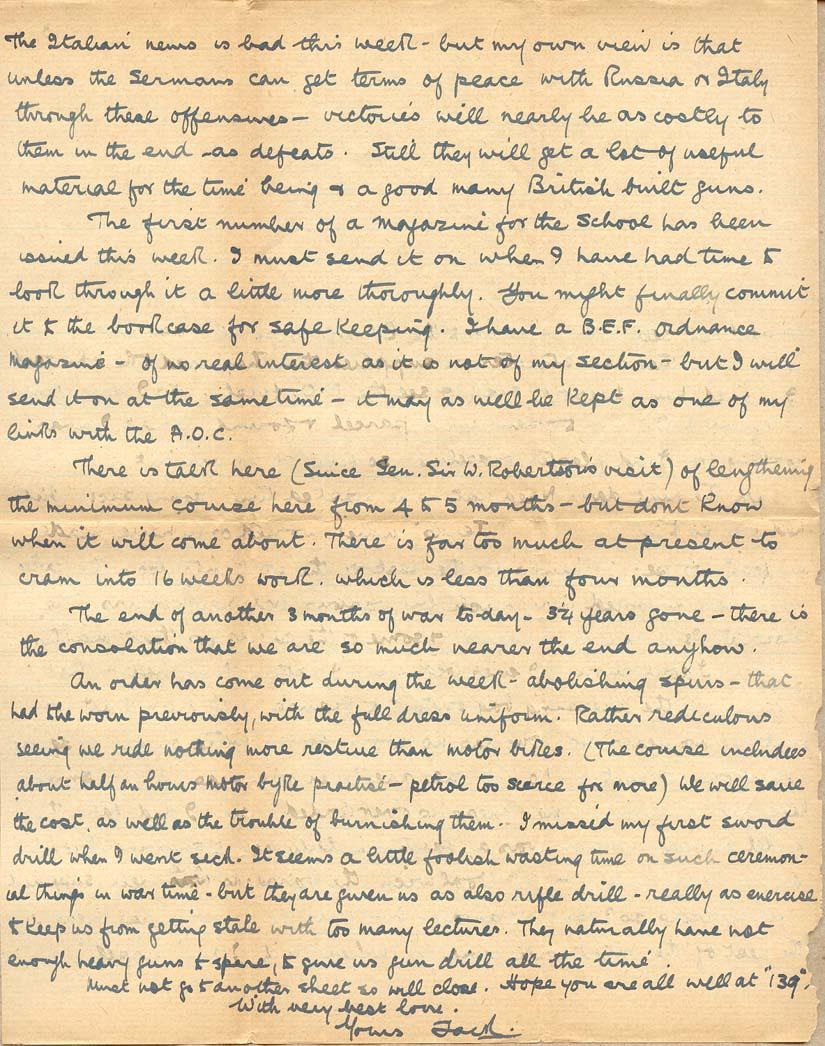 The Italian news is bad this week - but my own view is that
unless the Germans can get terms of peace with Russia or Italy
through these offensives - victories will nearly be as costly to
them in the end - as defeats. Still they will get a lot of useful
material for the time being & a good many British built guns.
The first number of a magazine for the School has been
issued this week. I must send it on when I have had time to
look through it a little more thoroughly. You might finally commit
it to the bookcase for safe keeping. I have a B.E.F. ordnance
magazine - of no real interest as it is not of my section - but I will
send it on at the same time - it may as well be kept as one of my
links with the A.O.C.
There is talk here (Since Gen. Sir W. Robertson's visit) of lengthening
the minimum course here from 4 to 5 months - but dont know
when it will come about. There is far too much at present to
cram into 16 weeks work. which is less than four months.
The end of another 3 months of war to-day - 3¼ years gone - there is
the consolation that we are so much nearer the end anyhow.
An order has come out during the week - abolishing spurs - that
had to be worn previously, with the full dress uniform. Rather rediculous
seeing we ride nothing more restive than motor bikes. (The course includees
about half an hours motor byke practise - petrol too scarce for more) We will save
the cost, as well as the trouble of burnishing them. I missed my first sword
drill when I went sick. It seems a little foolish wasting time on such ceremon-
ial things in war time - but they are given us as also rifle drill - really as exercise
to keep us from getting stale with too many lectures. They naturally have not
enough heavy guns to spare, to give us gun drill all the time.
Must not go to another sheet so will close. Hope you are all well at "139".
With very best love.
Yours Jack.